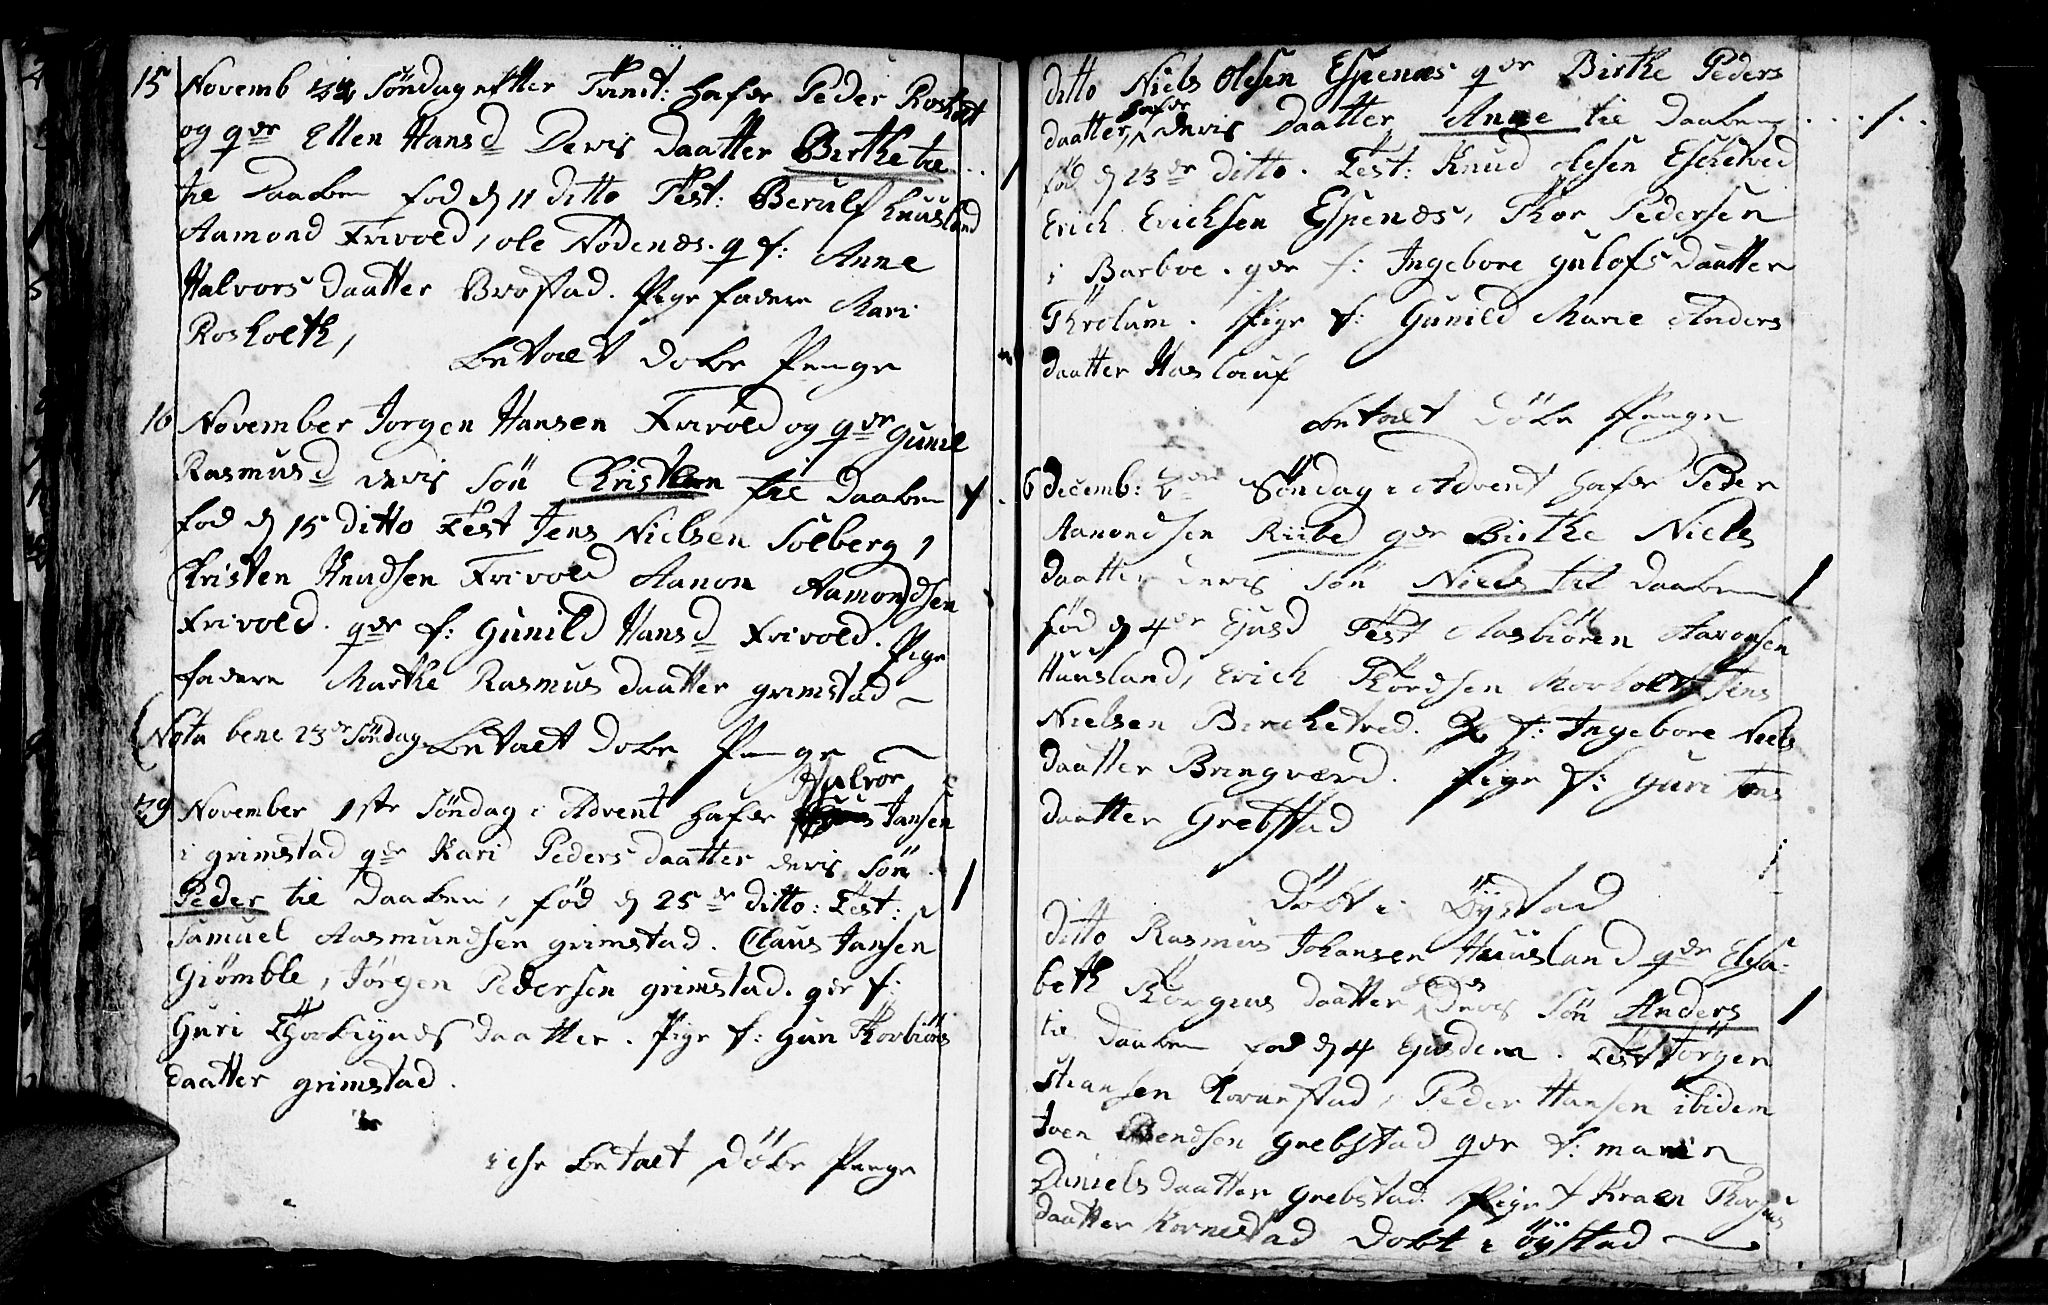 15 Novemb 24 Söndag efter Trinit: hafer Peder Rosholt
og qvr Ellen Hansd Deris Daatter Birthe til
til Daaben fød d 11 ditto Test: Berulf Knusland
Aamond Frivold, ole Nödenæs. q f: Anne
Halvors Daatter Brostad. Pige fadere Mari
Rosholth,
betalt Döbe Penge
16 November Jorgen Hansen Frivold og qvr Gunil
Rasmusd deris Sön Christen til Daaben 1
fød d 15 ditto Test Jens Nielsen Solberg,
Christen Knudsen Frivold Aanon Aamondsen
Frivold. qvr f: Gunild Hansd Frivold. Pige
fadere Marthe Rasmus daatter grimstad
Nota bene 23de Söndag betalt Döbe Penge
Halvor
29 November 1ste Söndag i Advent hafer Jansen
i grimstad qvr Kari Peders daatter deris Sön
Peder til Daaben, fød d 25de ditto: Test: 1
Samuel Aasmundsen grimstad. Claus Jansen
Giömble, Jörgen Pedersen grimstad. qvr f:
Guri daatter. Pige f: Guri Thorbiörns
daatter grimstad.
icke betalt Döbe Penge
ditto Niels Olesen Espenæs qvr Birthe Peders
hafer
daatter, deris Daatter Anne til Daaben . . . 1 . .
fød d 23de ditto. Test: Knud Olesen Eschetved
Erich Ericksen Espenæs, Thor Pedersen
i Barboe. qvr f: Ingebore gulofs Daatter
Pige f: Gunild Marie Anders
daatter
betalt Döbe Penge
6 Decemb: 2den Söndag i Advent hafer Peder
Aamondsen Riibe qvr Birthe Niels
daatter deris Sön Niels til Daaben 1
fød d 4de Ejusd Test Aasbiören Aaronsen
Huusland, Erich Thordsen Jens
Nielsen Birchetved. q f: Ingebore Niels
daatter Bringværd. Pige f: Guri Jens
daatter Grebstad
Döbt i Öÿstad
ditto Rasmus Johansen Huusland qvr Elisa-
beth daatter deris Sön Anders 1
til Daaben fød d 4 Ejusdem. Test Jörgen
Peder Hansen ibidem
Iven Bendsen Grebstad qvr f: maren
Daniels daatter Grebstad Pige f Kraen
daatter Döbt i Öÿstad